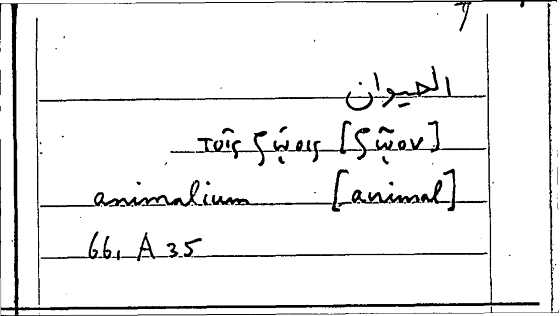 الحيوان
τοῖς ζῴοις [ζῷον]
animalium [animal]
66, A 35